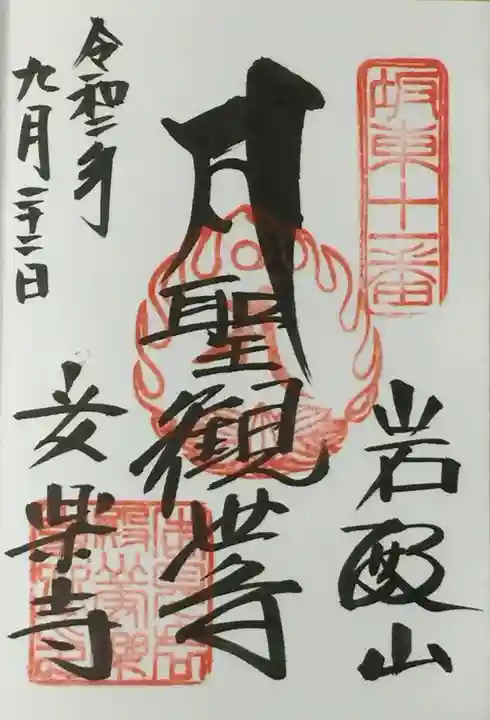 坂東十一番
岩殿山
聖観世音
安楽寺
令和二年
九月二十二日